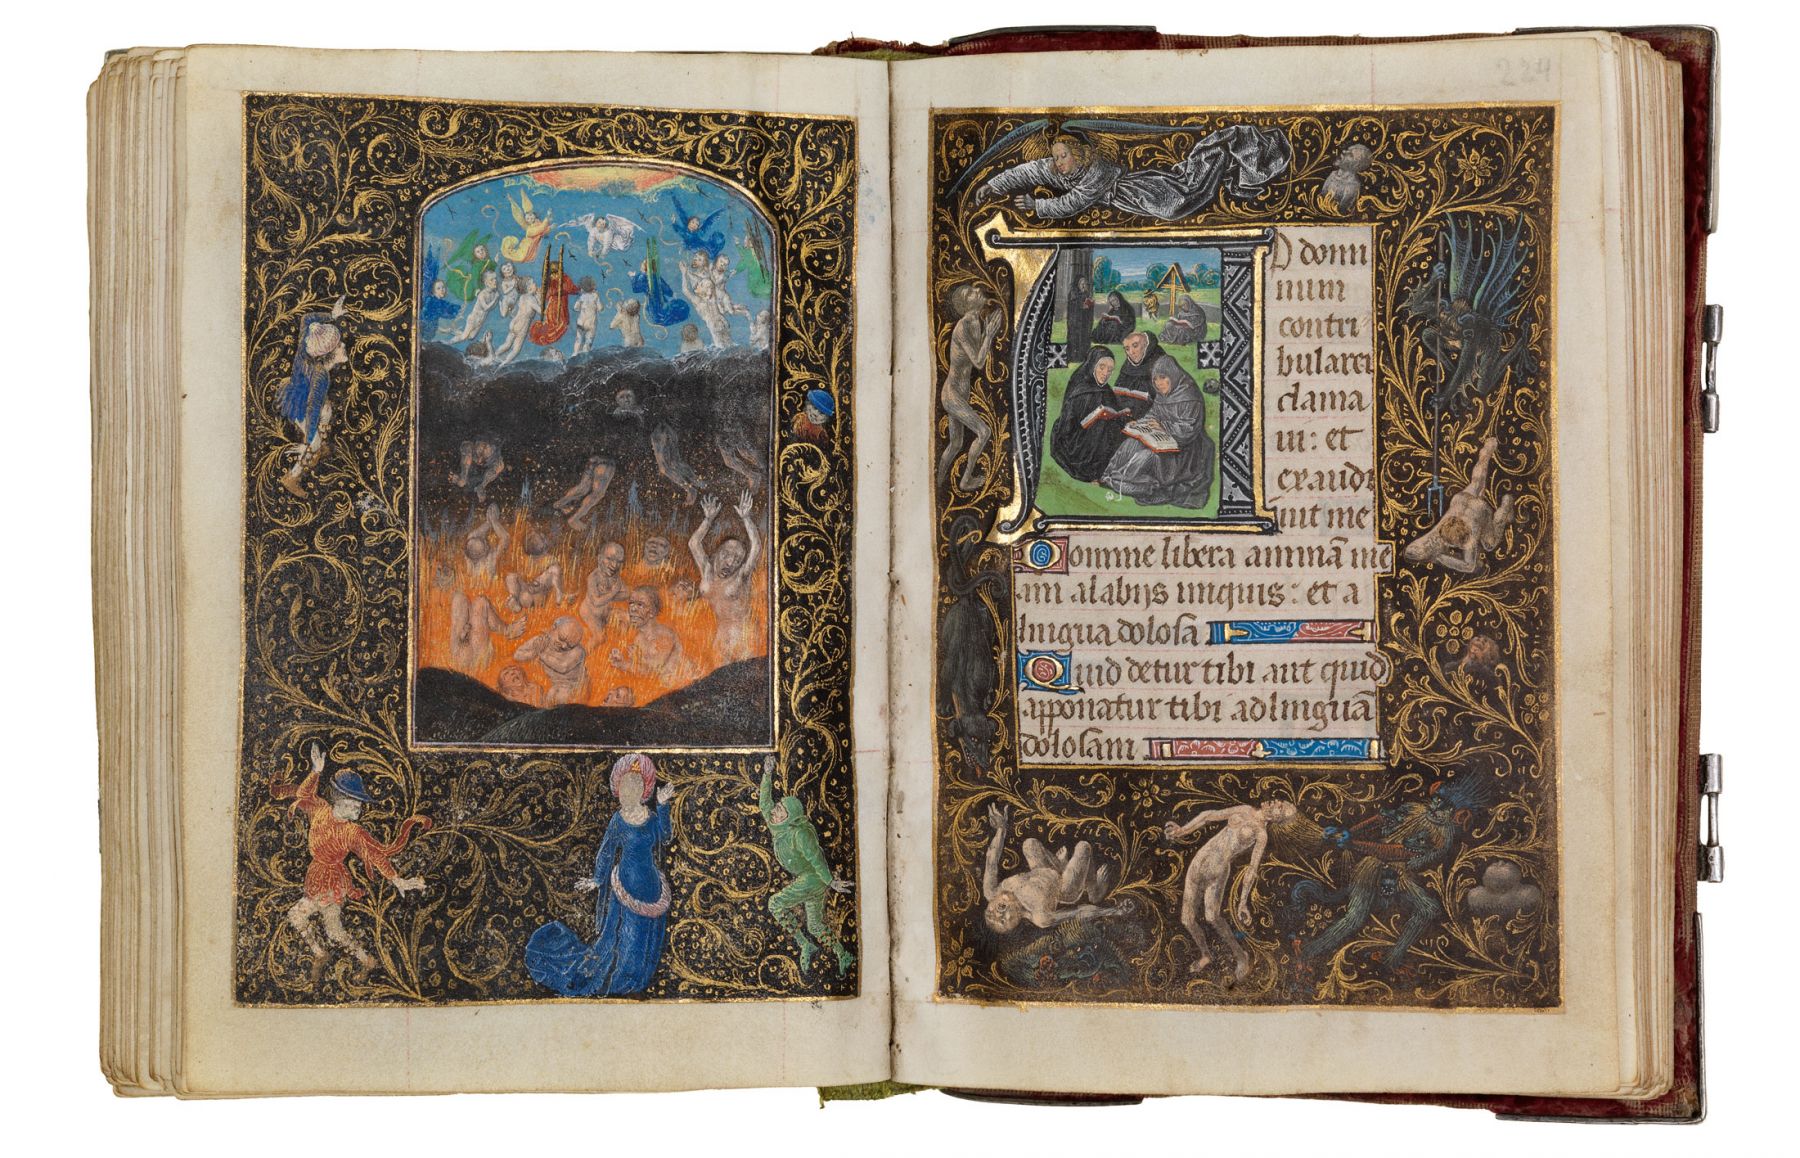 224
AD domi
num
contri
bularer
clama
ui: et
exaudi
uit me
Domine libera animā me
am a labijs iniquis: et a
lingua dolosa
Quid detur tibi aut quid
apponatur tibi ad linguā
dolosam